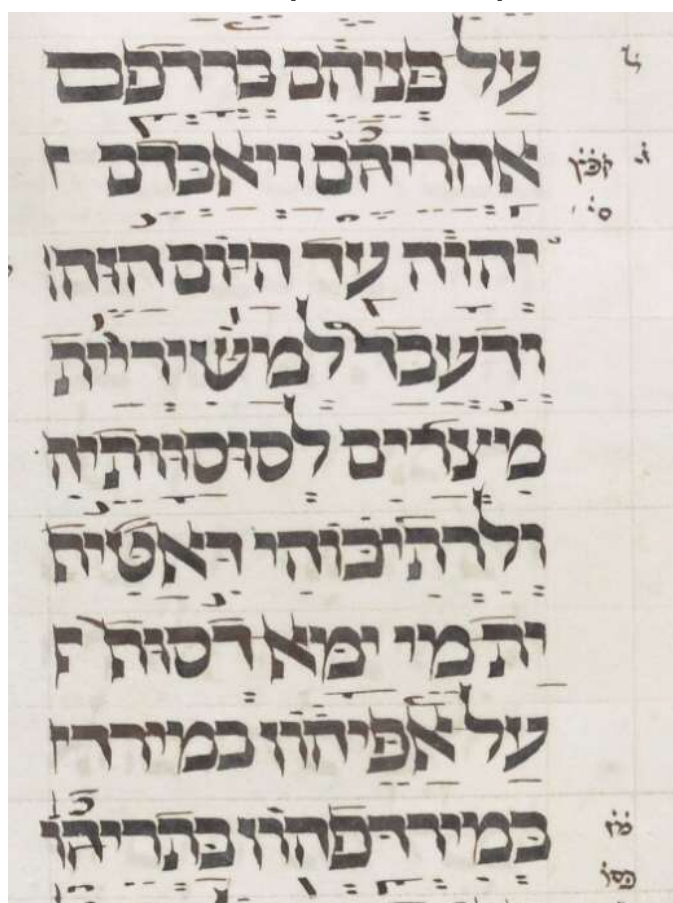 על פניהם ברדפם
אחריהם ויאבדם י
יהוה עד היום הזה:
ודעבד למשיריית
מיצרים לסוסוותיה
ולרתיכוהי דאטיף
ית מי ימא דסוף
על אפיהון במירדו
במירדפהון בתריהון